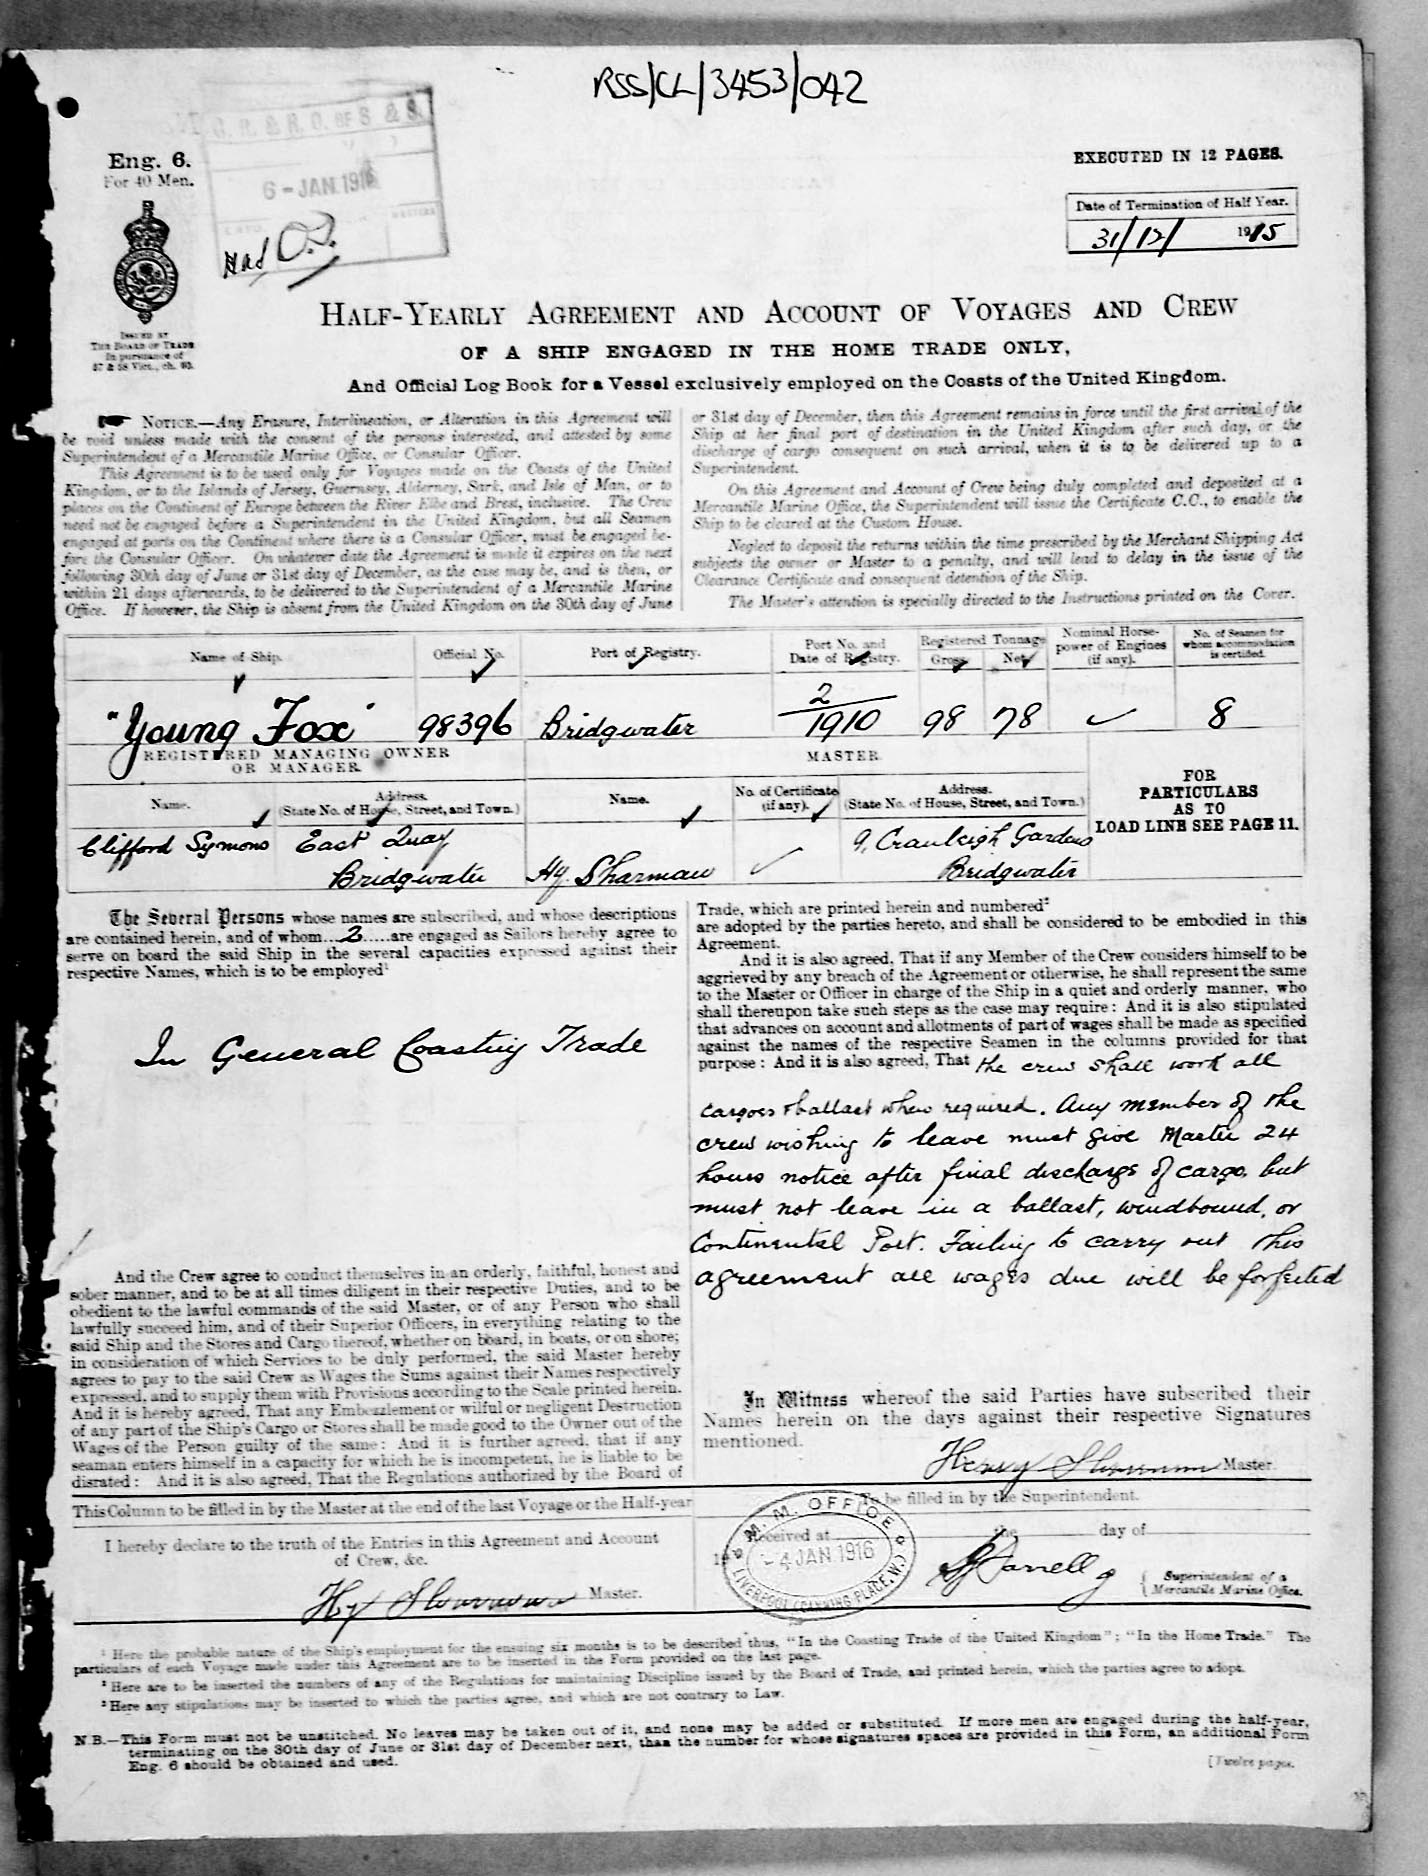 RSS/CL/3453/042
G. R. & R. O. OF S & S.
6 - JAN. 1916
Eng. 6.
For 40 Men.
EXECUTED IN 12 PAGES.
Date of Termination of Half Year.
31/12/ 1915
ISSUED BY
THE BOARD OF TRADE
In pursuance of
57 & 58 Vict., ch. 60.
HALF-YEARLY AGREEMENT AND ACCOUNT OF VOYAGES AND CREW
OF A SHIP ENGAGED IN THE HOME TRADE ONLY,
And Official Log Book for a Vessel exclusively employed on the Coasts of the United Kingdom.
NOTICE.—Any Erasure, Interlineation, or Alteration in this Agreement will
be void unless made with the consent of the persons interested, and attested by some
Superintendent of a Mercantile Marine Office, or Consular Officer.
This Agreement is to be used only for Voyages made on the Coasts of the United
Kingdom, or to the Islands of Jersey, Guernsey, Alderney, Sark, and Isle of Man, or to
places on the Continent of Europe between the River Elbe and Brest, inclusive. The Crew
need not be engaged before a Superintendent in the United Kingdom, but all Seamen
engaged at ports on the Continent where there is a Consular Officer, must be engaged be-
fore the Consular Officer. On whatever date the Agreement is made it expires on the next
following 30th day of June or 31st day of December, as the case may be, and is then, or
within 21 days afterwards, to be delivered to the Superintendent of a Mercantile Marine
Office. If however, the Ship is absent from the United Kingdom on the 30th day of June
or 31st day of December, then this Agreement remains in force until the first arrival of the
Ship at her final port of destination in the United Kingdom after such day, or the
discharge of cargo consequent on such arrival, when it is to be delivered up to a
Superintendent.
On this Agreement and Account of Crew being duly completed and deposited at a
Mercantile Marine Office, the Superintendent will issue the Certificate C.C., to enable the
Ship to be cleared at the Custom House.
Neglect to deposit the returns within the time prescribed by the Merchant Shipping Act
subjects the owner or Master to a penalty, and will lead to delay in the issue of the
Clearance Certificate and consequent detention of the Ship.
The Master's attention is specially directed to the Instructions printed on the Cover.
Name of Ship. Official No. Port of Registry. Port No. and Date of Registry. Registered Tonnage Gross Net Nominal Horse-power of Engines (if any). No. of Seamen for whom accommodation is certified.
"Young Fox" 98396 Bridgwater 2/1910 98 78 ✓ 8
REGISTERED MANAGING OWNER
OR MANAGER.
MASTER.
Name. Address. (State No. of House, Street, and Town.) Name. No. of Certificate (if any). Address. (State No. of House, Street, and Town.)
FOR
PARTICULARS
AS TO
LOAD LINE SEE PAGE 11.
Clifford Symons East Quay 9, Cranleigh Gardens
Bridgwater Hy. Sharman ✓ Bridgwater
The Several Persons whose names are subscribed, and whose descriptions
are contained herein, and of whom...2.....are engaged as Sailors hereby agree to
serve on board the said Ship in the several capacities expressed against their
respective Names, which is to be employed¹
In General Coasting Trade
And the Crew agree to conduct themselves in an orderly, faithful, honest and
sober manner, and to be at all times diligent in their respective Duties, and to be
obedient to the lawful commands of the said Master, or of any Person who shall
lawfully succeed him, and of their Superior Officers, in everything relating to the
said Ship and the Stores and Cargo thereof, whether on board, in boats, or on shore;
in consideration of which Services to be duly performed, the said Master hereby
agrees to pay to the said Crew as Wages the Sums against their Names respectively
expressed, and to supply them with Provisions according to the Scale printed herein.
And it is hereby agreed, That any Embezzlement or wilful or negligent Destruction
of any part of the Ship's Cargo or Stores shall be made good to the Owner out of the
Wages of the Person guilty of the same: And it is further agreed, that if any
seaman enters himself in a capacity for which he is incompetent, he is liable to be
disrated: And it is also agreed, That the Regulations authorized by the Board of
Trade, which are printed herein and numbered²
are adopted by the parties hereto, and shall be considered to be embodied in this
Agreement.
And it is also agreed, That if any Member of the Crew considers himself to be
aggrieved by any breach of the Agreement or otherwise, he shall represent the same
to the Master or Officer in charge of the Ship in a quiet and orderly manner, who
shall thereupon take such steps as the case may require: And it is also stipulated
that advances on account and allotments of part of wages shall be made as specified
against the names of the respective Seamen in the columns provided for that
purpose: And it is also agreed, That the crew shall work all
cargoes & ballast when required. Any member of the
crew wishing to leave must give Master 24
hours notice after final discharge of cargo, but
must not leave in a ballast, windbound, or
Continental Port. Failing to carry out this
agreement all wages due will be forfeited
In Witness whereof the said Parties have subscribed their
Names herein on the days against their respective Signatures
mentioned.
Henry Sharman Master.
This Column to be filled in by the Master at the end of the last Voyage or the Half-year
I hereby declare to the truth of the Entries in this Agreement and Account
of Crew, &c.
Hy Sharman Master.
To be filled in by the Superintendent.
Received at the day of
19
M. M. OFFICE
- 4 JAN 1916
LIVERPOOL (CANNING PLACE, W.)
Superintendent of a
Mercantile Marine Office.
¹ Here the probable nature of the Ship's employment for the ensuing six months is to be described thus, "In the Coasting Trade of the United Kingdom"; "In the Home Trade." The
particulars of each Voyage made under this Agreement are to be inserted in the Form provided on the last page.
² Here are to be inserted the numbers of any of the Regulations for maintaining Discipline issued by the Board of Trade, and printed herein, which the parties agree to adopt.
³ Here any stipulations may be inserted to which the parties agree, and which are not contrary to Law.
N.B.—This Form must not be unstitched. No leaves may be taken out of it, and none may be added or substituted. If more men are engaged during the half-year,
terminating on the 30th day of June or 31st day of December next, than the number for whose signatures spaces are provided in this Form, an additional Form
Eng. 6 should be obtained and used.
[Twelve pages.